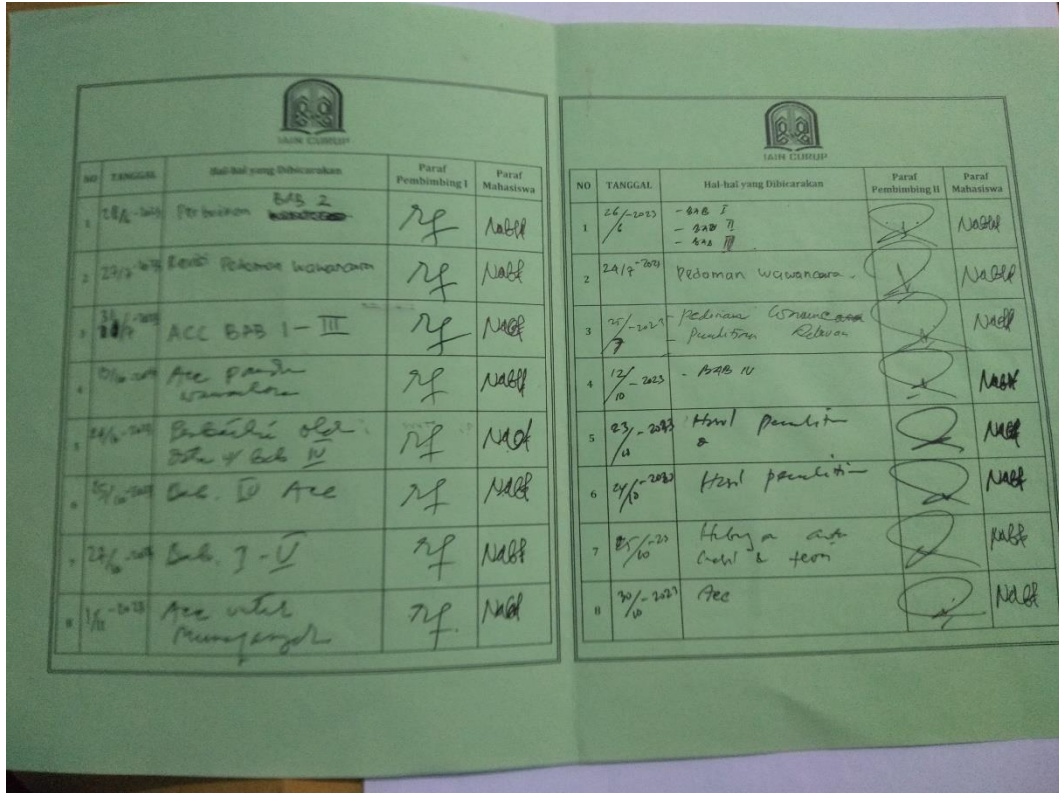 IAIN CURUP
NO TANGGAL Hal-hal yang Dibicarakan Paraf Pembimbing I Paraf Mahasiswa
1 28/6-2023 Perbaikan BAB 2
2 27/7-2023 Revisi Pedoman wawancara
3 31/7-2023 ACC BAB I - III
4 Acc
wawancara
5 24/10-2023
Bab IV
6 25/10-2023 Bab. IV Acc
7 27/10-2023 Bab. I - V
8 1/11-2023 Acc untuk
Munaqasyah
IAIN CURUP
NO TANGGAL Hal-hal yang Dibicarakan Paraf Pembimbing II Paraf Mahasiswa
1 26/6-2023 - BAB I
- BAB II
- BAB III
2 24/7-2023 Pedoman wawancara.
3 25/7-2023 - Pedoman
- Penelitian Relevan
4 12/10-2023 - BAB IV
5 23/10-2023 Hasil penelitian
6 24/10-2023 Hasil penelitian
7 25/10-23 Hubungan antara
hasil & teori
8 30/10-2023 Acc